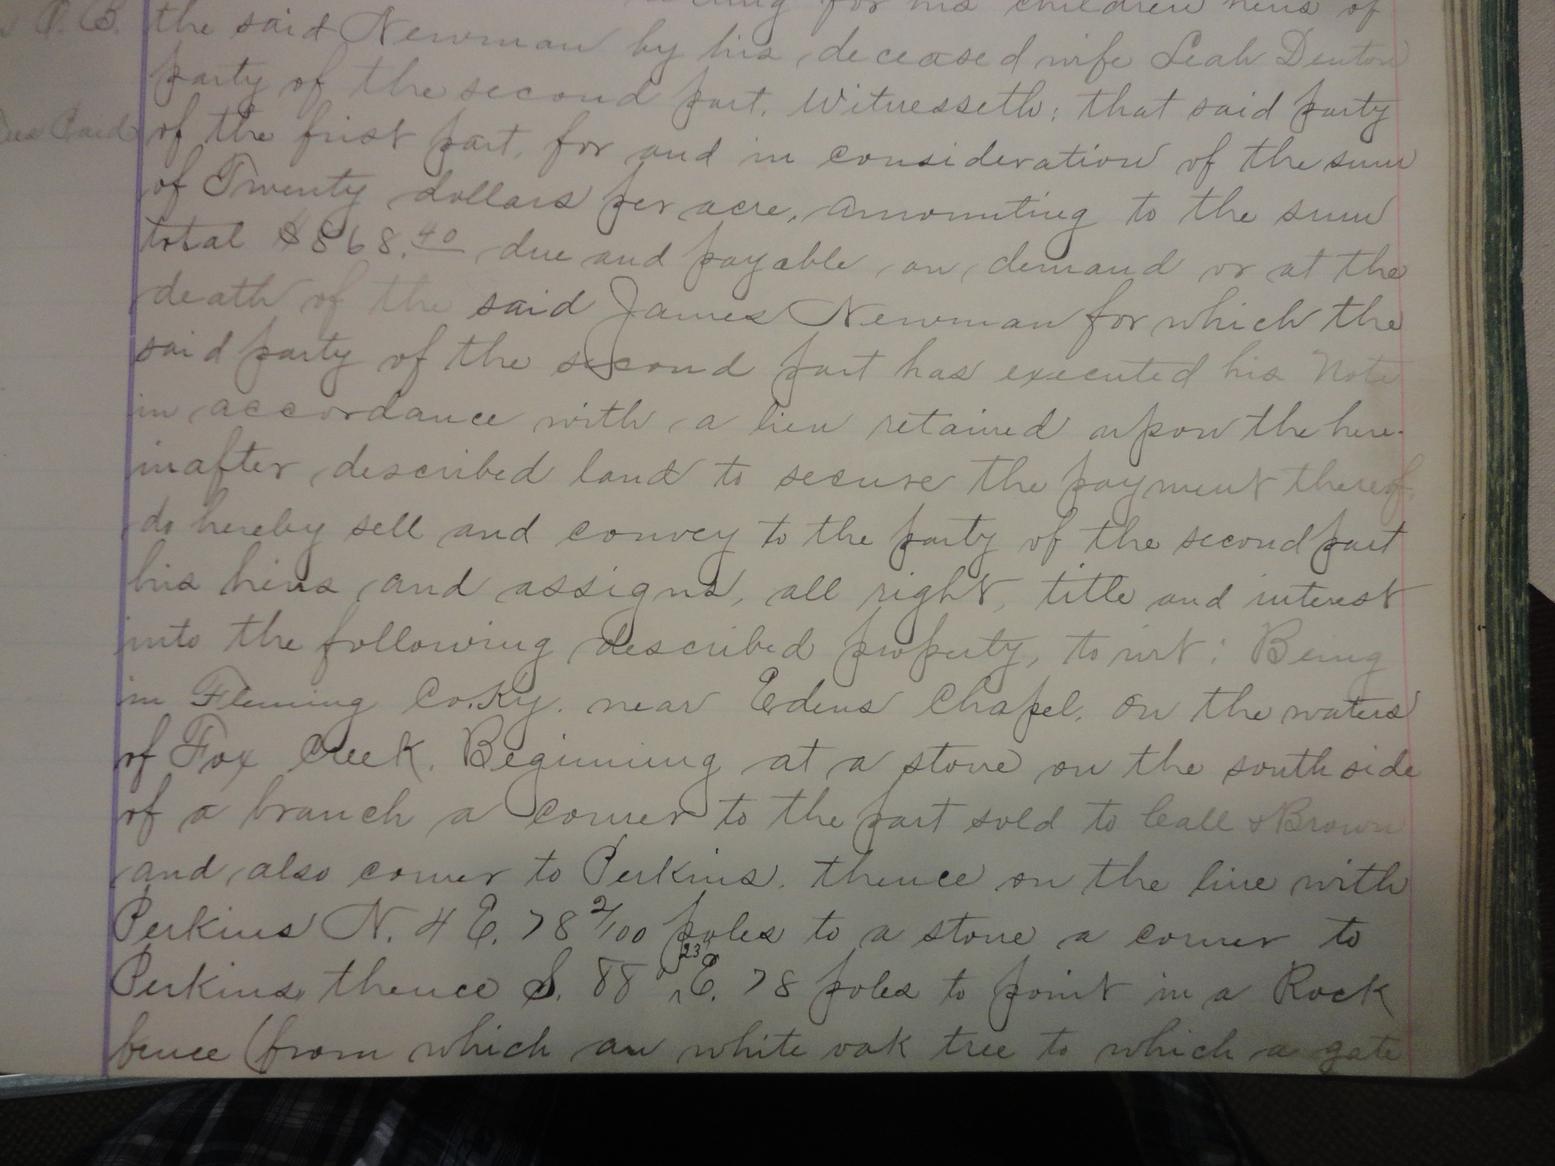 for his children heirs of
P. B. the said Newman by his deceased wife Leah Denton
party of the second part. Witnesseth; that said party
Paid of the first part, for and in consideration of the sum
of Twenty dollars per acre, amounting to the sum
total $868.40 due and payable on demand or at the
death of the said James Newman for which the
said party of the second part has executed his Note
in accordance with a lien retained upon the here-
inafter described land to secure the payment thereof
do hereby sell and convey to the party of the second part
his heirs and assigns, all right, title and interest
into the following described property, to wit: Being
in Fleming Co. Ky. near Edens Chapel. On the waters
of Fox Creek. Beginning at a stone on the south side
of a branch a corner to the part sold to Call & Brown
and also corner to Perkins. thence on the line with
Perkins N. 4 E. 78 2/100 poles to a stone a corner to
Perkins, thence S. 88° 23' E. 78 poles to point in a Rock
fence (from which an white oak tree to which a gate